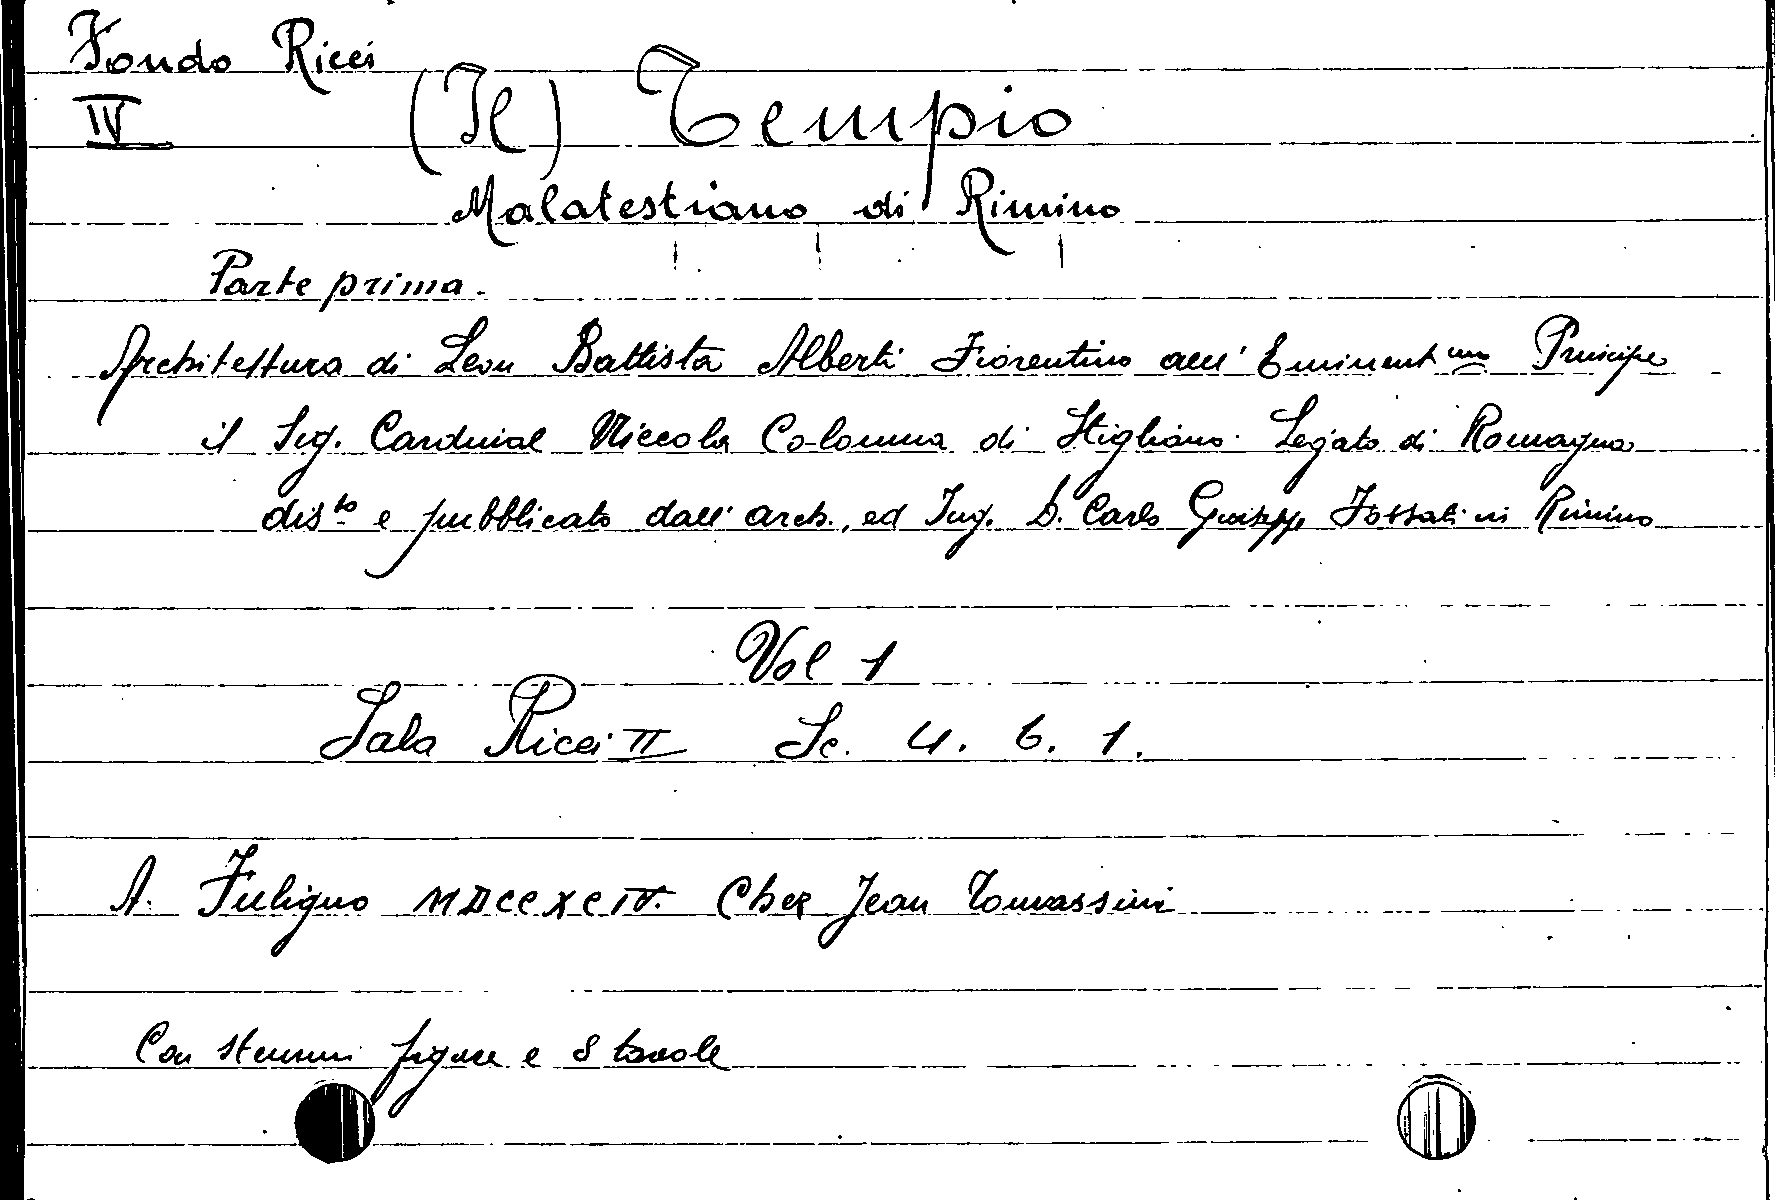 Fondo Ricci
IV
(Il) Tempio
Malatestiano di Rimino
Parte prima.
Architettura di Leon Battista Alberti Fiorentino all' Eminent.mo Principe
il Sig. Cardinal Niccola Colonna di Stigliano Legato di Romagna
dis.to e pubblicato dall' arch., ed Ing. D. Carlo Giuseppe Fossati in Rimino
Vol 1
Sala Ricci II Sc. 4. 6. 1.
A. Fuligno MDCCXCIV. Chez Jean Tomassini
Con stemmi figure e 8 tavole